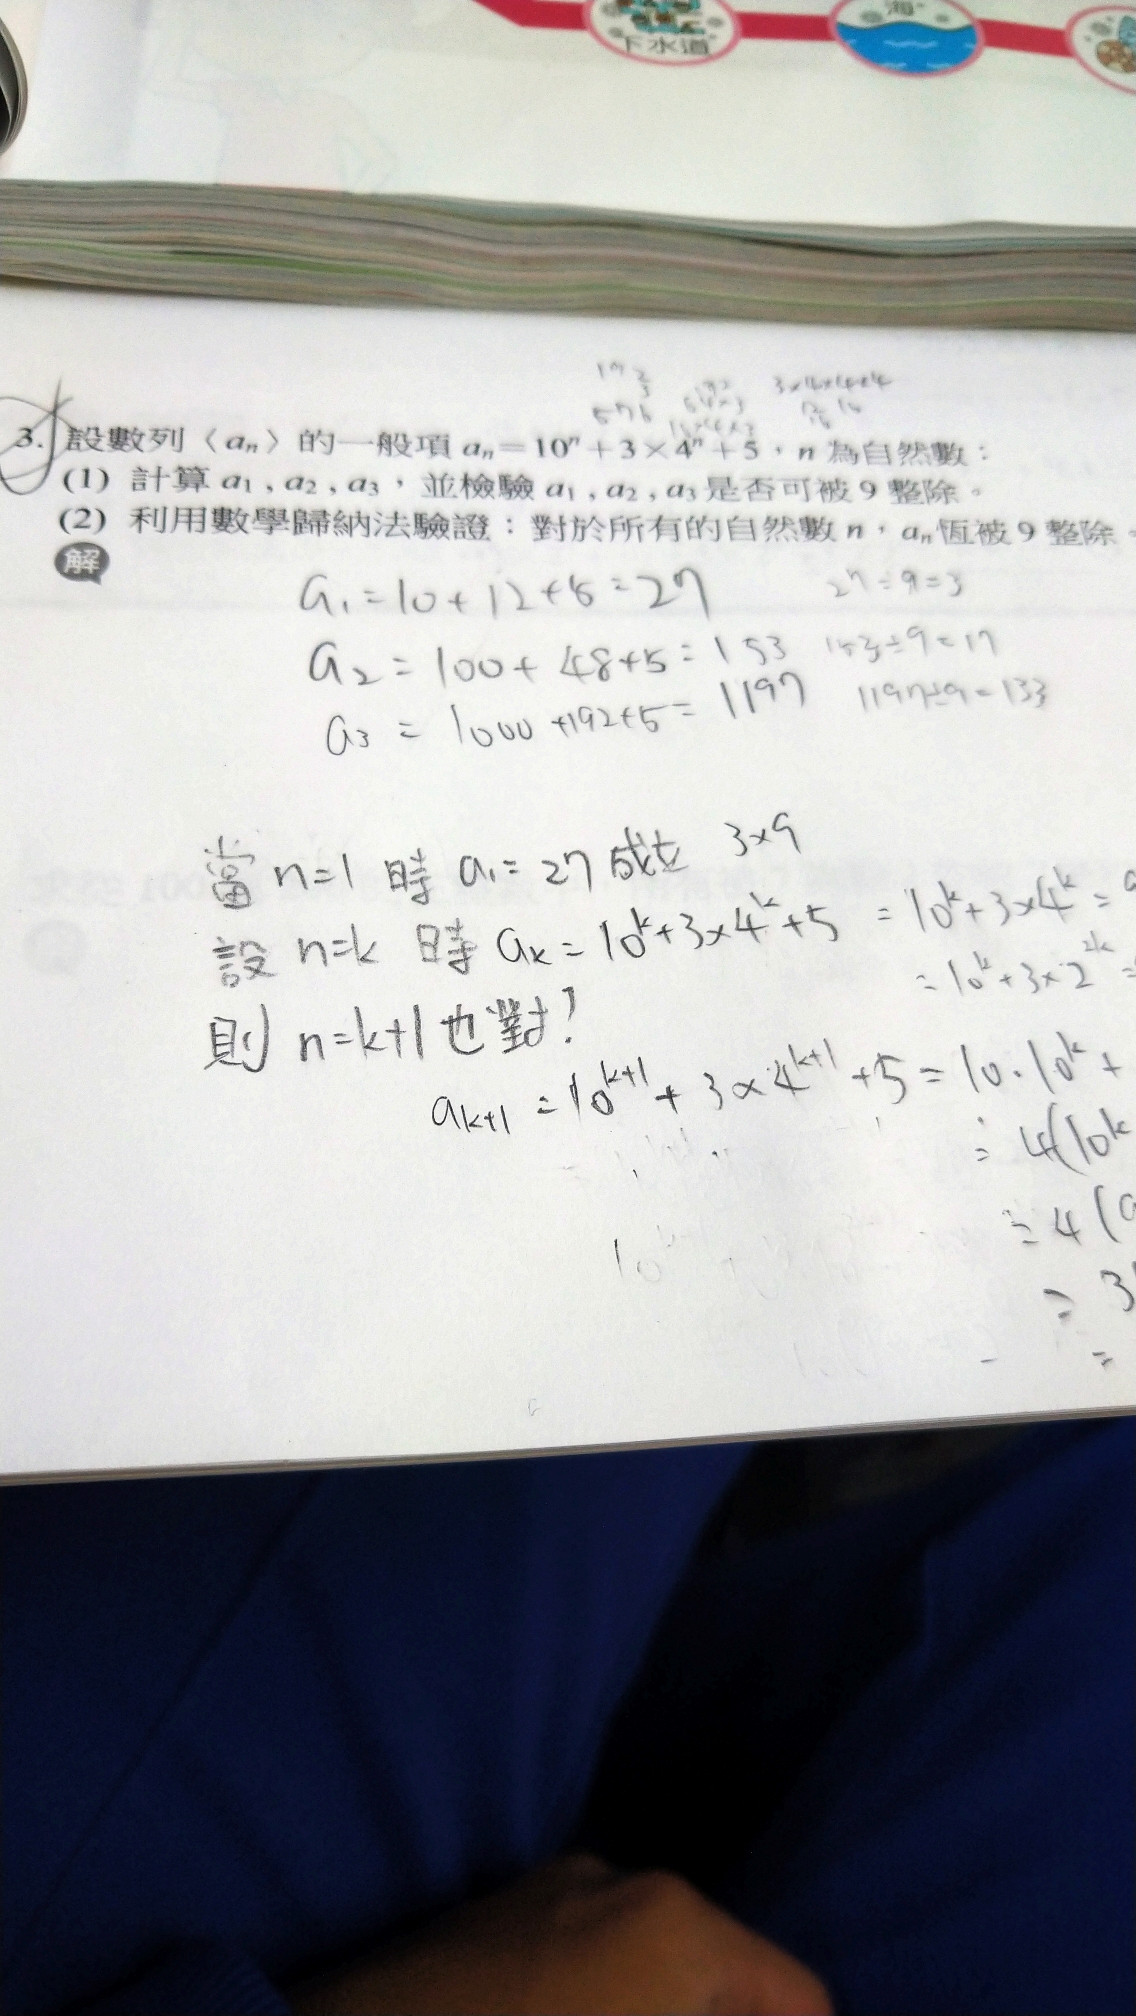 下水道
海
3. 設數列〈an〉的一般項 an=10ⁿ+3×4ⁿ+5，n 為自然數：
(1) 計算 a1，a2，a3，並檢驗 a1，a2，a3 是否可被 9 整除。
(2) 利用數學歸納法驗證：對於所有的自然數 n，an 恆被 9 整除。
解
a1=10+12+5=27 27÷9=3
a2=100+48+5=153 153÷9=17
a3=1000+192+5=1197 1197÷9=133
當 n=1 時 a1=27 成立 3×9
設 n=k 時 ak=10^k+3×4^k+5 =10^k+3×4^k=
=10^k+3×2^2k=
則 n=k+1 也對?
ak+1=10^k+1+3×4^k+1+5=10·10^k+
=4(10^k
=4(
=3
=